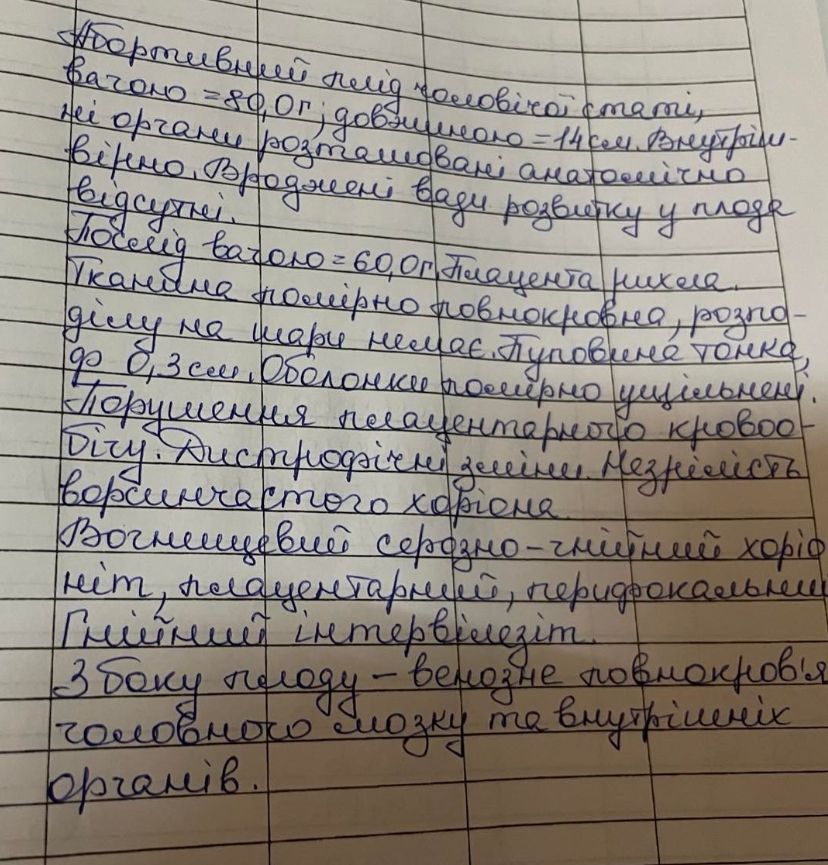 Абортивний плід чоловічої статі,
вагою =80,0г; довжиною =14см. Внутріш-
ні органи розташовані анатомічно
вірно. Вроджені вади розвитку у плода
відсутні.
Послід вагою =60,0г. Плацента рихла.
Тканина помірно повнокровна, розпо-
ділу на шари немає. Пуповина тонка,
до 0,3см. Оболонки помірно ущільнені.
Порушення плацентарного кровоо-
бігу. Дистрофічні зміни. Незрілість
ворсинчастого хоріона.
Вогнищевий серозно-гнійний хоріо
ніт, плацентарний, перифокальний
Гнійний інтервілезіт.
З боку плоду – венозне повнокров'я
головного мозку та внутрішніх
органів.